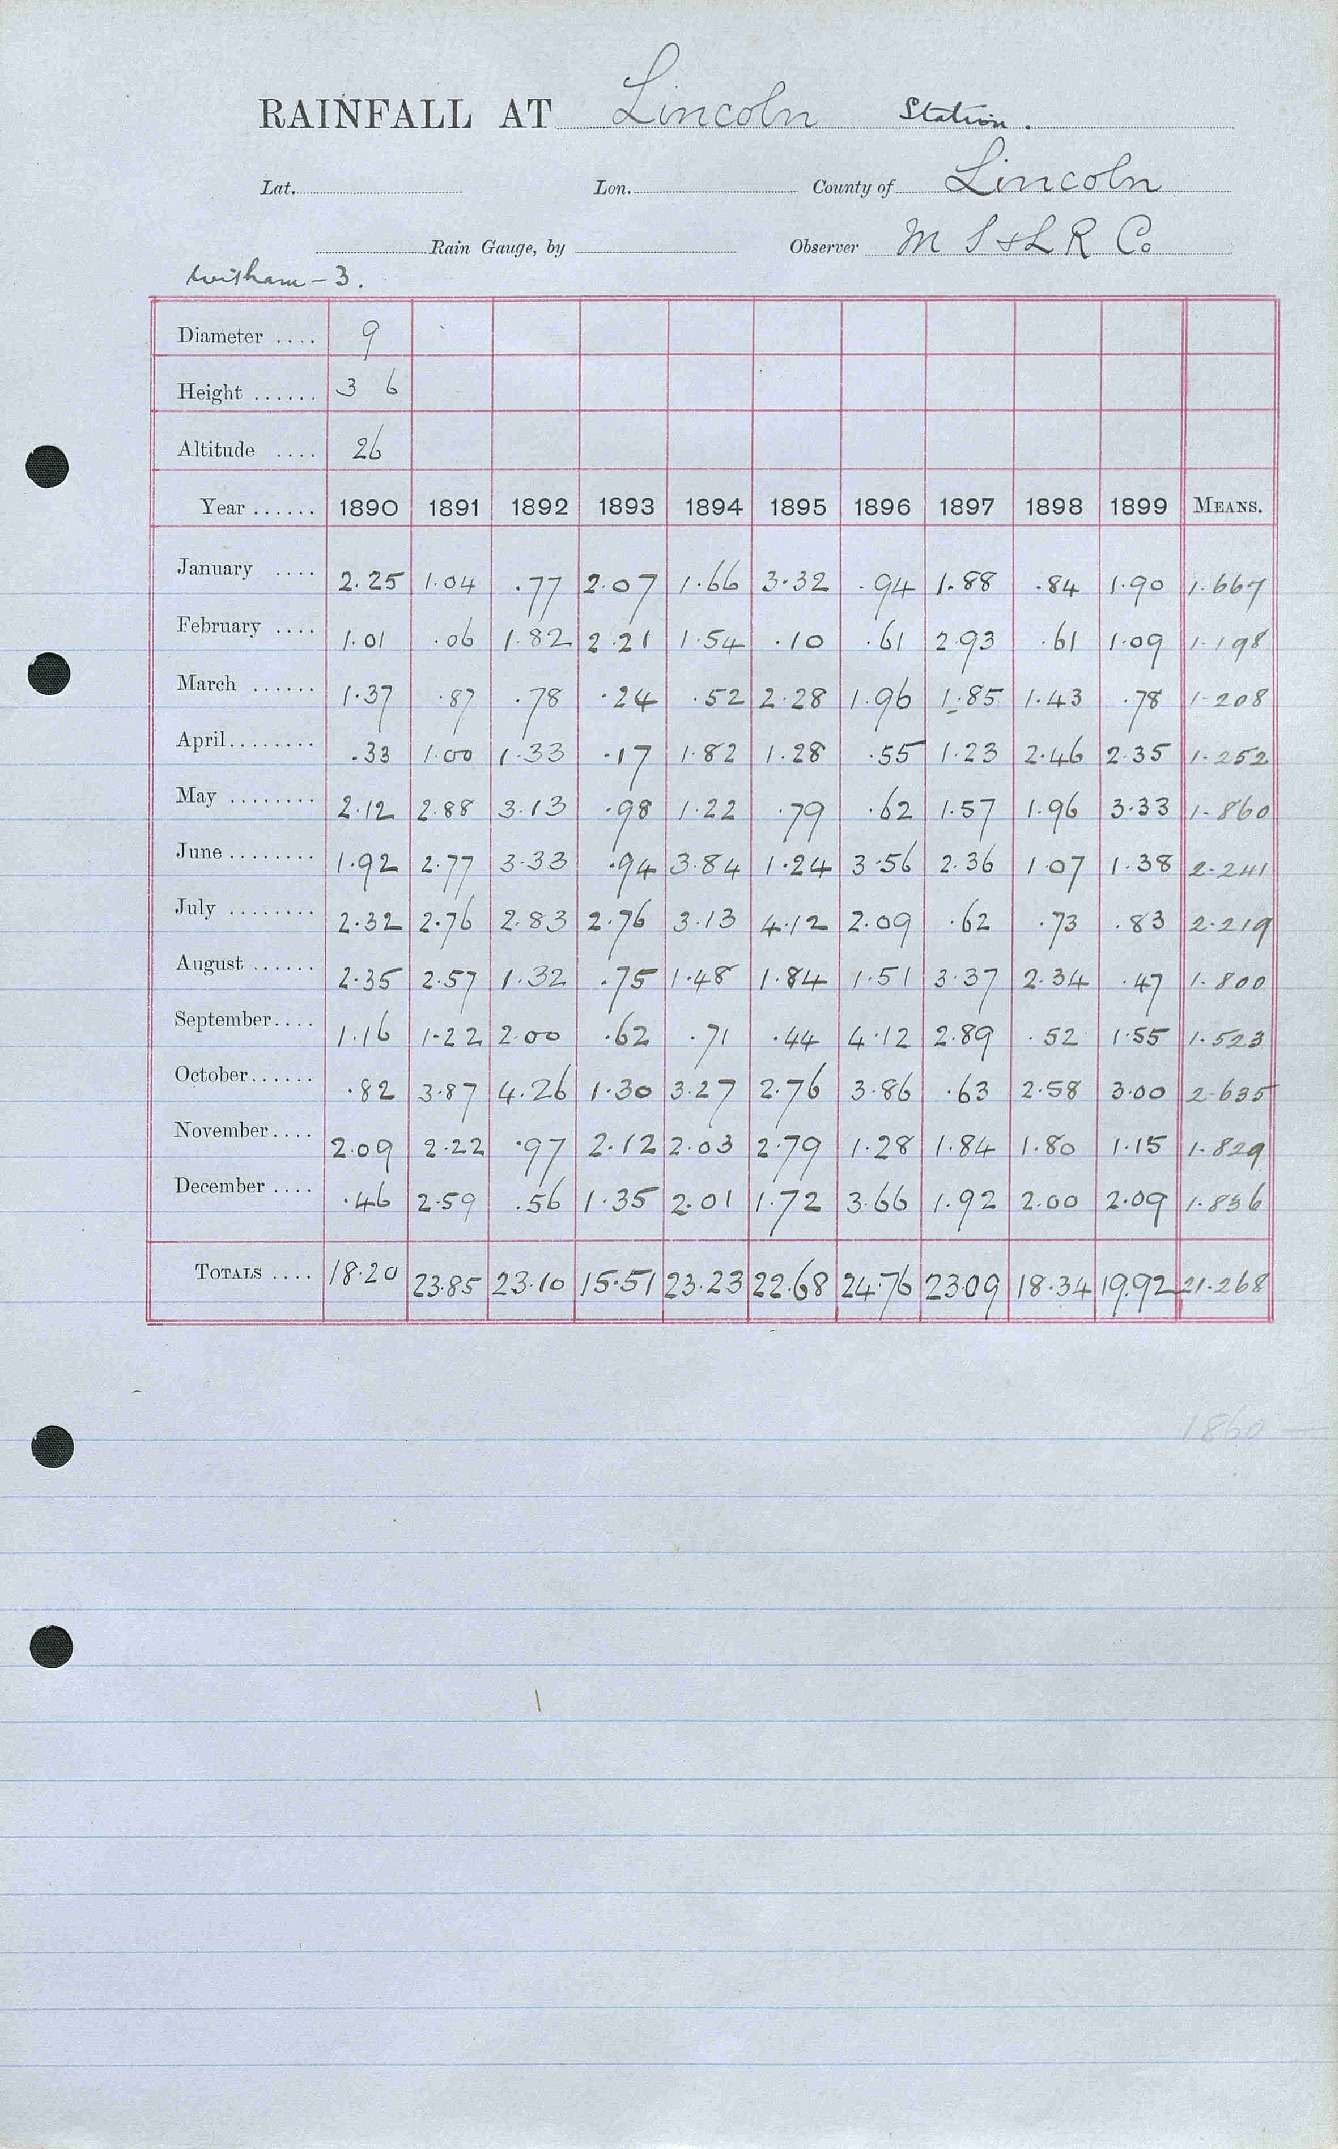 RAINFALL AT Lincoln Station.
Lat. Lon. County of Lincoln
Rain Gauge, by Observer M S & L R Co
Witham – 3.
Diameter .... 9
Height ...... 3 6
Altitude .... 26
Year ...... 1890 1891 1892 1893 1894 1895 1896 1897 1898 1899 MEANS.
January .... 2.25 1.04 .77 2.07 1.66 3.32 .94 1.88 .84 1.90 1.667
February .... 1.01 .06 1.82 2.21 1.54 .10 .61 2.93 .61 1.09 1.198
March ...... 1.37 .87 .78 .24 .52 2.28 1.96 1.85 1.43 .78 1.208
April........ .33 1.00 1.33 .17 1.82 1.28 .55 1.23 2.46 2.35 1.252
May ........ 2.12 2.88 3.13 .98 1.22 .79 .62 1.57 1.96 3.33 1.860
June ........ 1.92 2.77 3.33 .94 3.84 1.24 3.56 2.36 1.07 1.38 2.241
July ........ 2.32 2.76 2.83 2.76 3.13 4.12 2.09 .62 .73 .83 2.219
August ...... 2.35 2.57 1.32 .75 1.48 1.84 1.51 3.37 2.34 .47 1.800
September.... 1.16 1.22 2.00 .62 .71 .44 4.12 2.89 .52 1.55 1.523
October...... .82 3.87 4.26 1.30 3.27 2.76 3.86 .63 2.58 3.00 2.635
November.... 2.09 2.22 .97 2.12 2.03 2.79 1.28 1.84 1.80 1.15 1.829
December .... .46 2.59 .56 1.35 2.01 1.72 3.66 1.92 2.00 2.09 1.836
TOTALS .... 18.20 23.85 23.10 15.51 23.23 22.68 24.76 23.09 18.34 19.92 21.268
1860 —